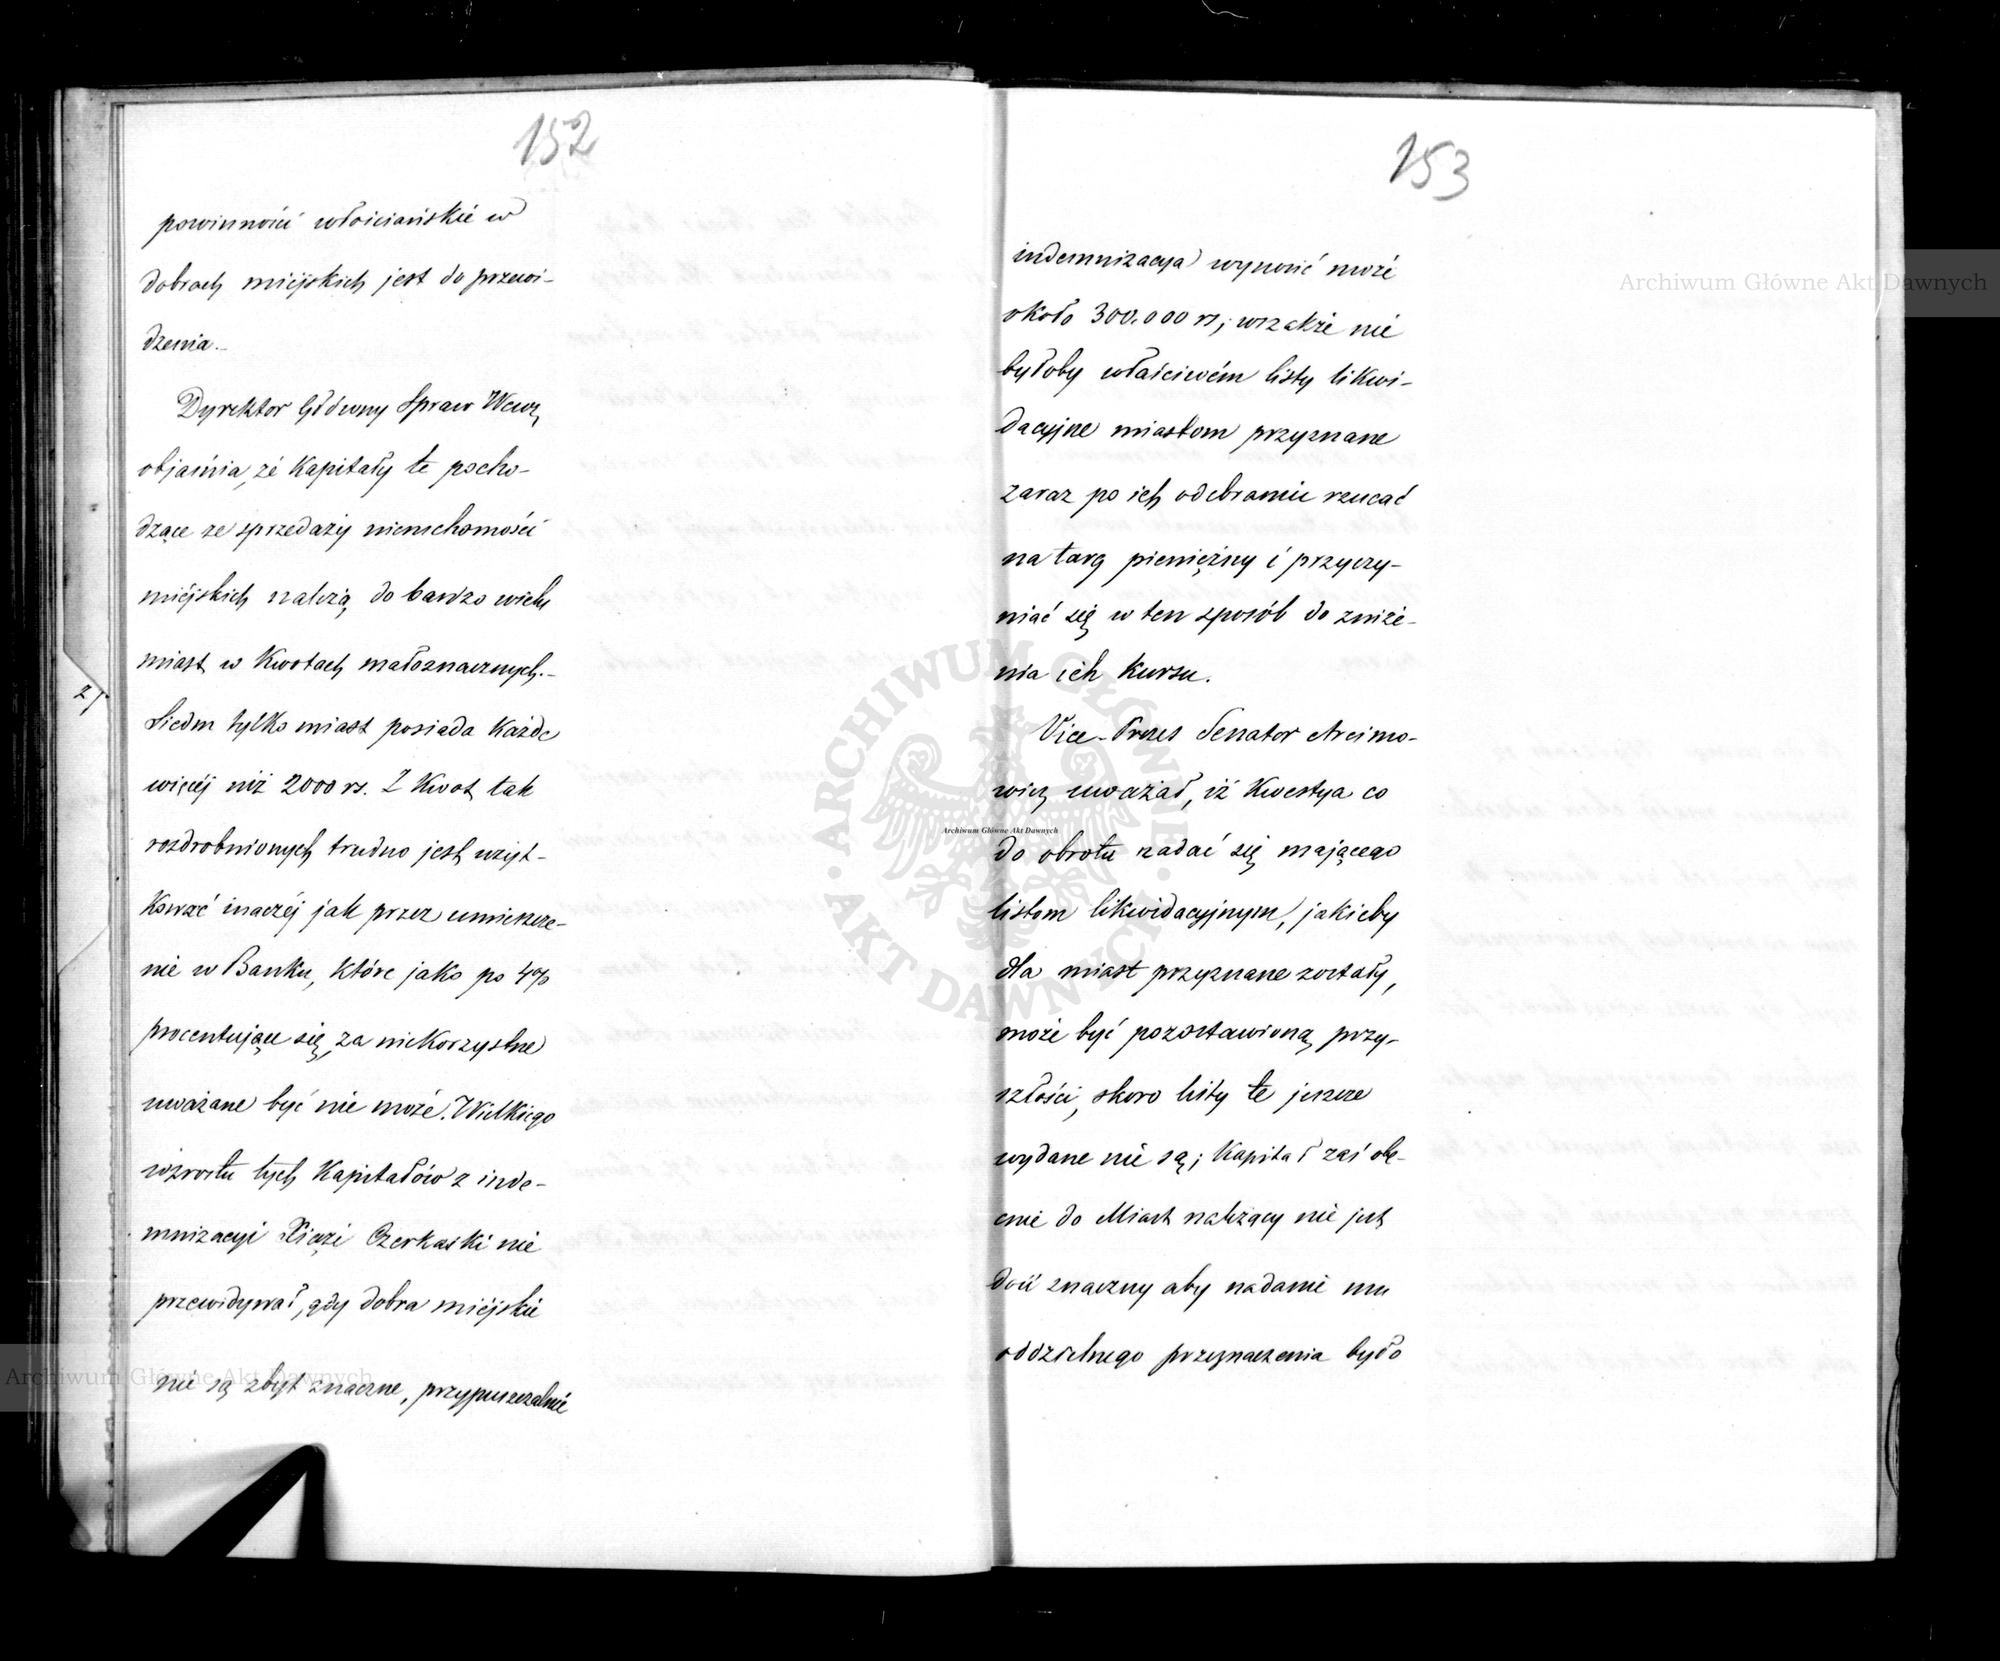 152
powinności włościańskie w
dobrach miejskich jest do przewi-
dzenia.-
Dyrektor Główny Spraw Wewn
objaśnia, że Kapitały te pocho-
dzące ze sprzedaży nieruchomości
miejskich należą do bardzo wielu
miast w Kwotach małoznacznych.-
Siedm tylko miast posiada Każde
więcéj niż 2000 rs. Z Kwot tak
rozdrobnionych trudno jest użyt-
Kować inaczéj jak przez umieszcze-
nie w Banku, które jako po 4%
procentujące się, za niekorzystne
uważane być nie może. Wielkiego
wzrostu tych Kapitałów z inde-
mnizacyi Xiąże Czerkaski nie
przewidywał, gdy dobra miejskie
nie są zbyt znaczne, przypuszczalnie
153
indemnizacya wynosić może
około 300.000 rs; wszakże nie
byłoby właściwém listy likwi-
dacyjne miastom przyznane
zaraz po ich odebraniu rzucać
na targ pieniężny i przyczy-
niać się w ten sposób do zniże-
nia ich Kursu.
Vice-Prezes Senator Arcimo-
wicz uważał, iż Kwestya co
do obrotu nadać się mającego
listom likwidacyjnym, jakieby
dla miast przyznane zostały,
może być pozostawioną przy-
szłości, skoro listy te jeszcze
wydane nie są; Kapitał zaś obe-
cnie do Miast należący nie jest
dość znaczny aby nadanie mu
oddzielnego przeznaczenia było
Archiwum Główne Akt Dawnych
Archiwum Główne Akt Dawnych
Archiwum Główne Akt Dawnych
ARCHIWUM GŁÓWNE
AKT DAWNYCH